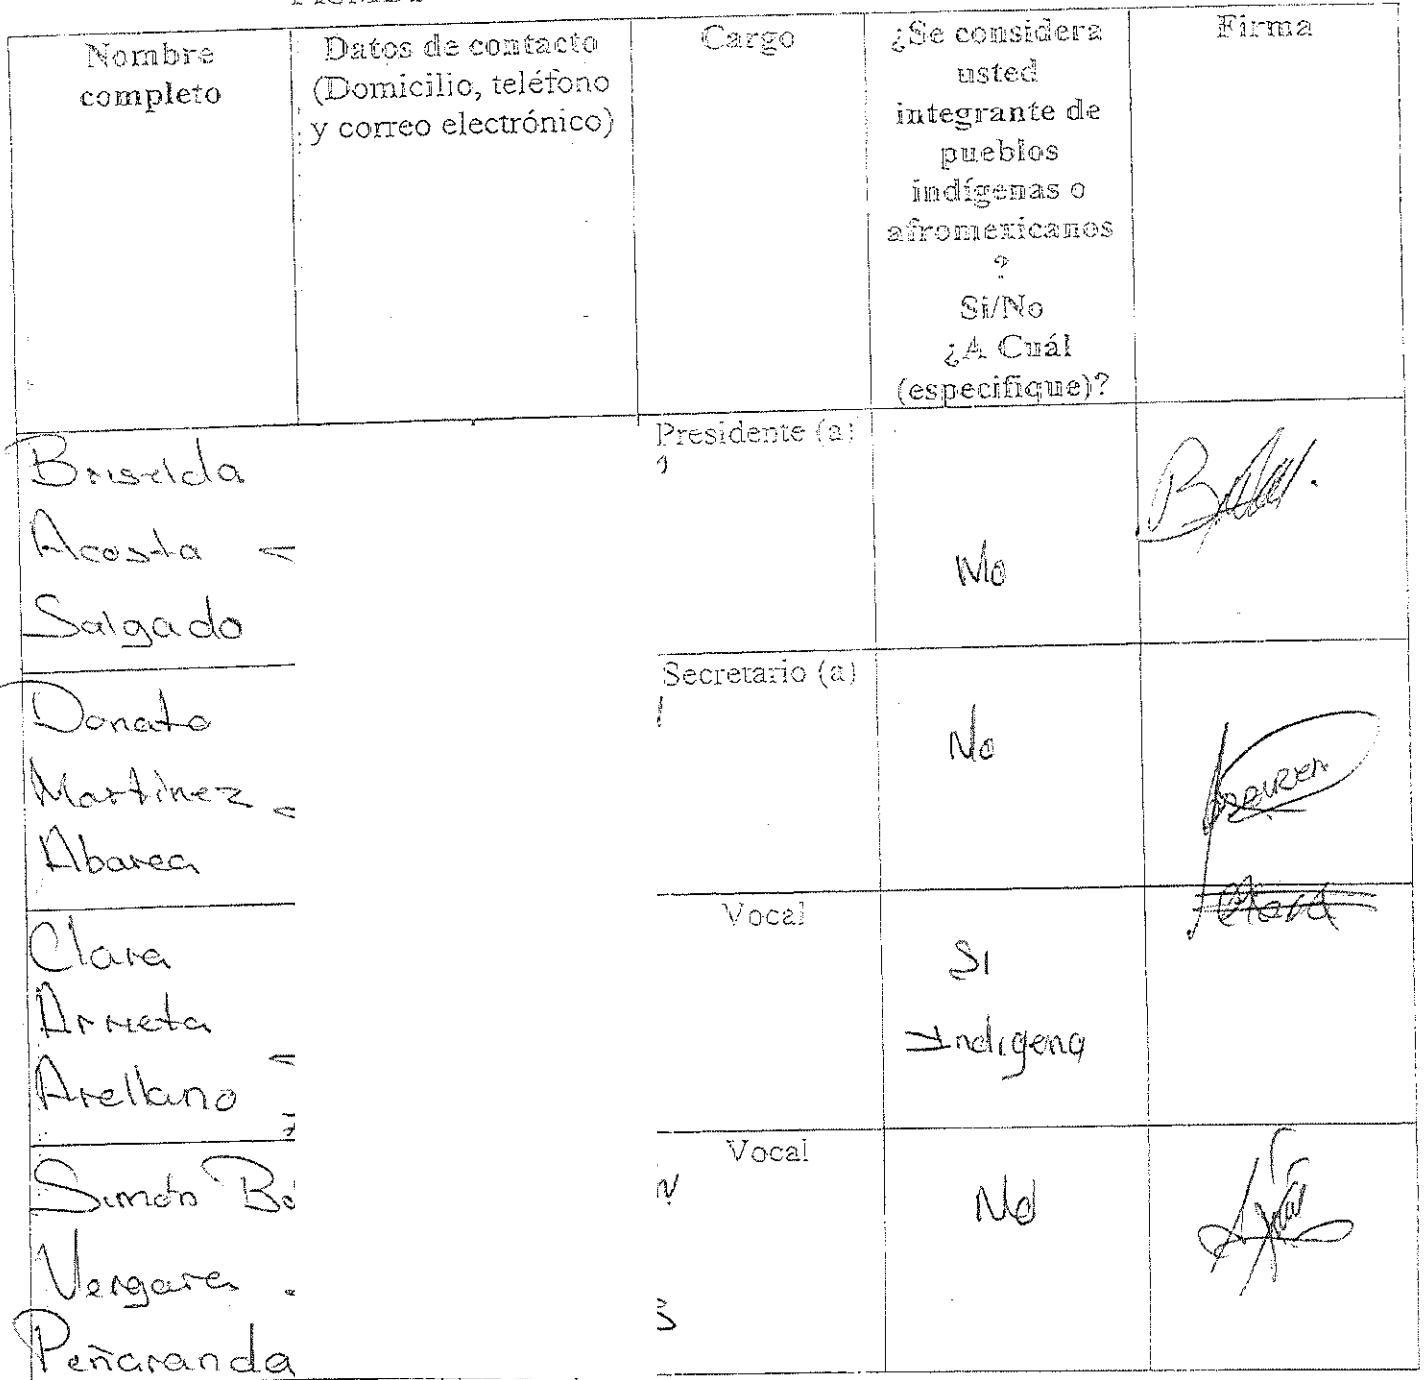 Nombre
completo
Datos de contacto
(Domicilio, teléfono
y correo electrónico)
Cargo
¿Se considera
usted
integrante de
pueblos
indígenas o
afromexicanos
?
Si/No
¿A Cuál
(especifique)?
Firma
Briselda
Acosta
Salgado
Presidente (a)
No
Donato
Martinez
Abarca
Secretario (a)
No
Clara
Arrieta
Arellano
Vocal
Si
Indigena
Clara
Simón
Vergara
Peñaranda
Vocal
No